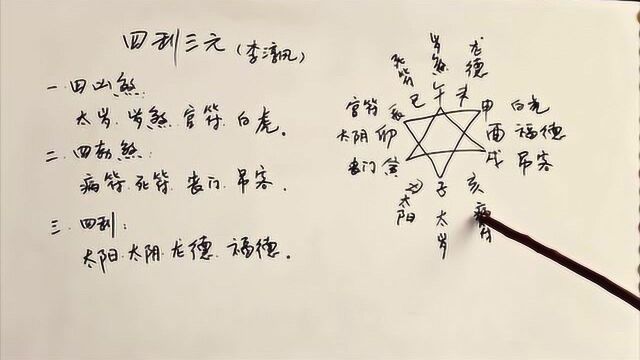 四利三元（李淳风）
一.四凶煞:
太岁.岁煞.官符.白虎。
二.四勃煞:
病符.死符.丧门.吊客.
三.四利:
太阳.太阴.龙德.福德。
死符 岁煞 龙德
巳 午 未
官符 辰 申 白虎
太阴 卯 酉 福德
丧门 寅 戌 吊客
丑 子 亥
太阳 太岁 病符